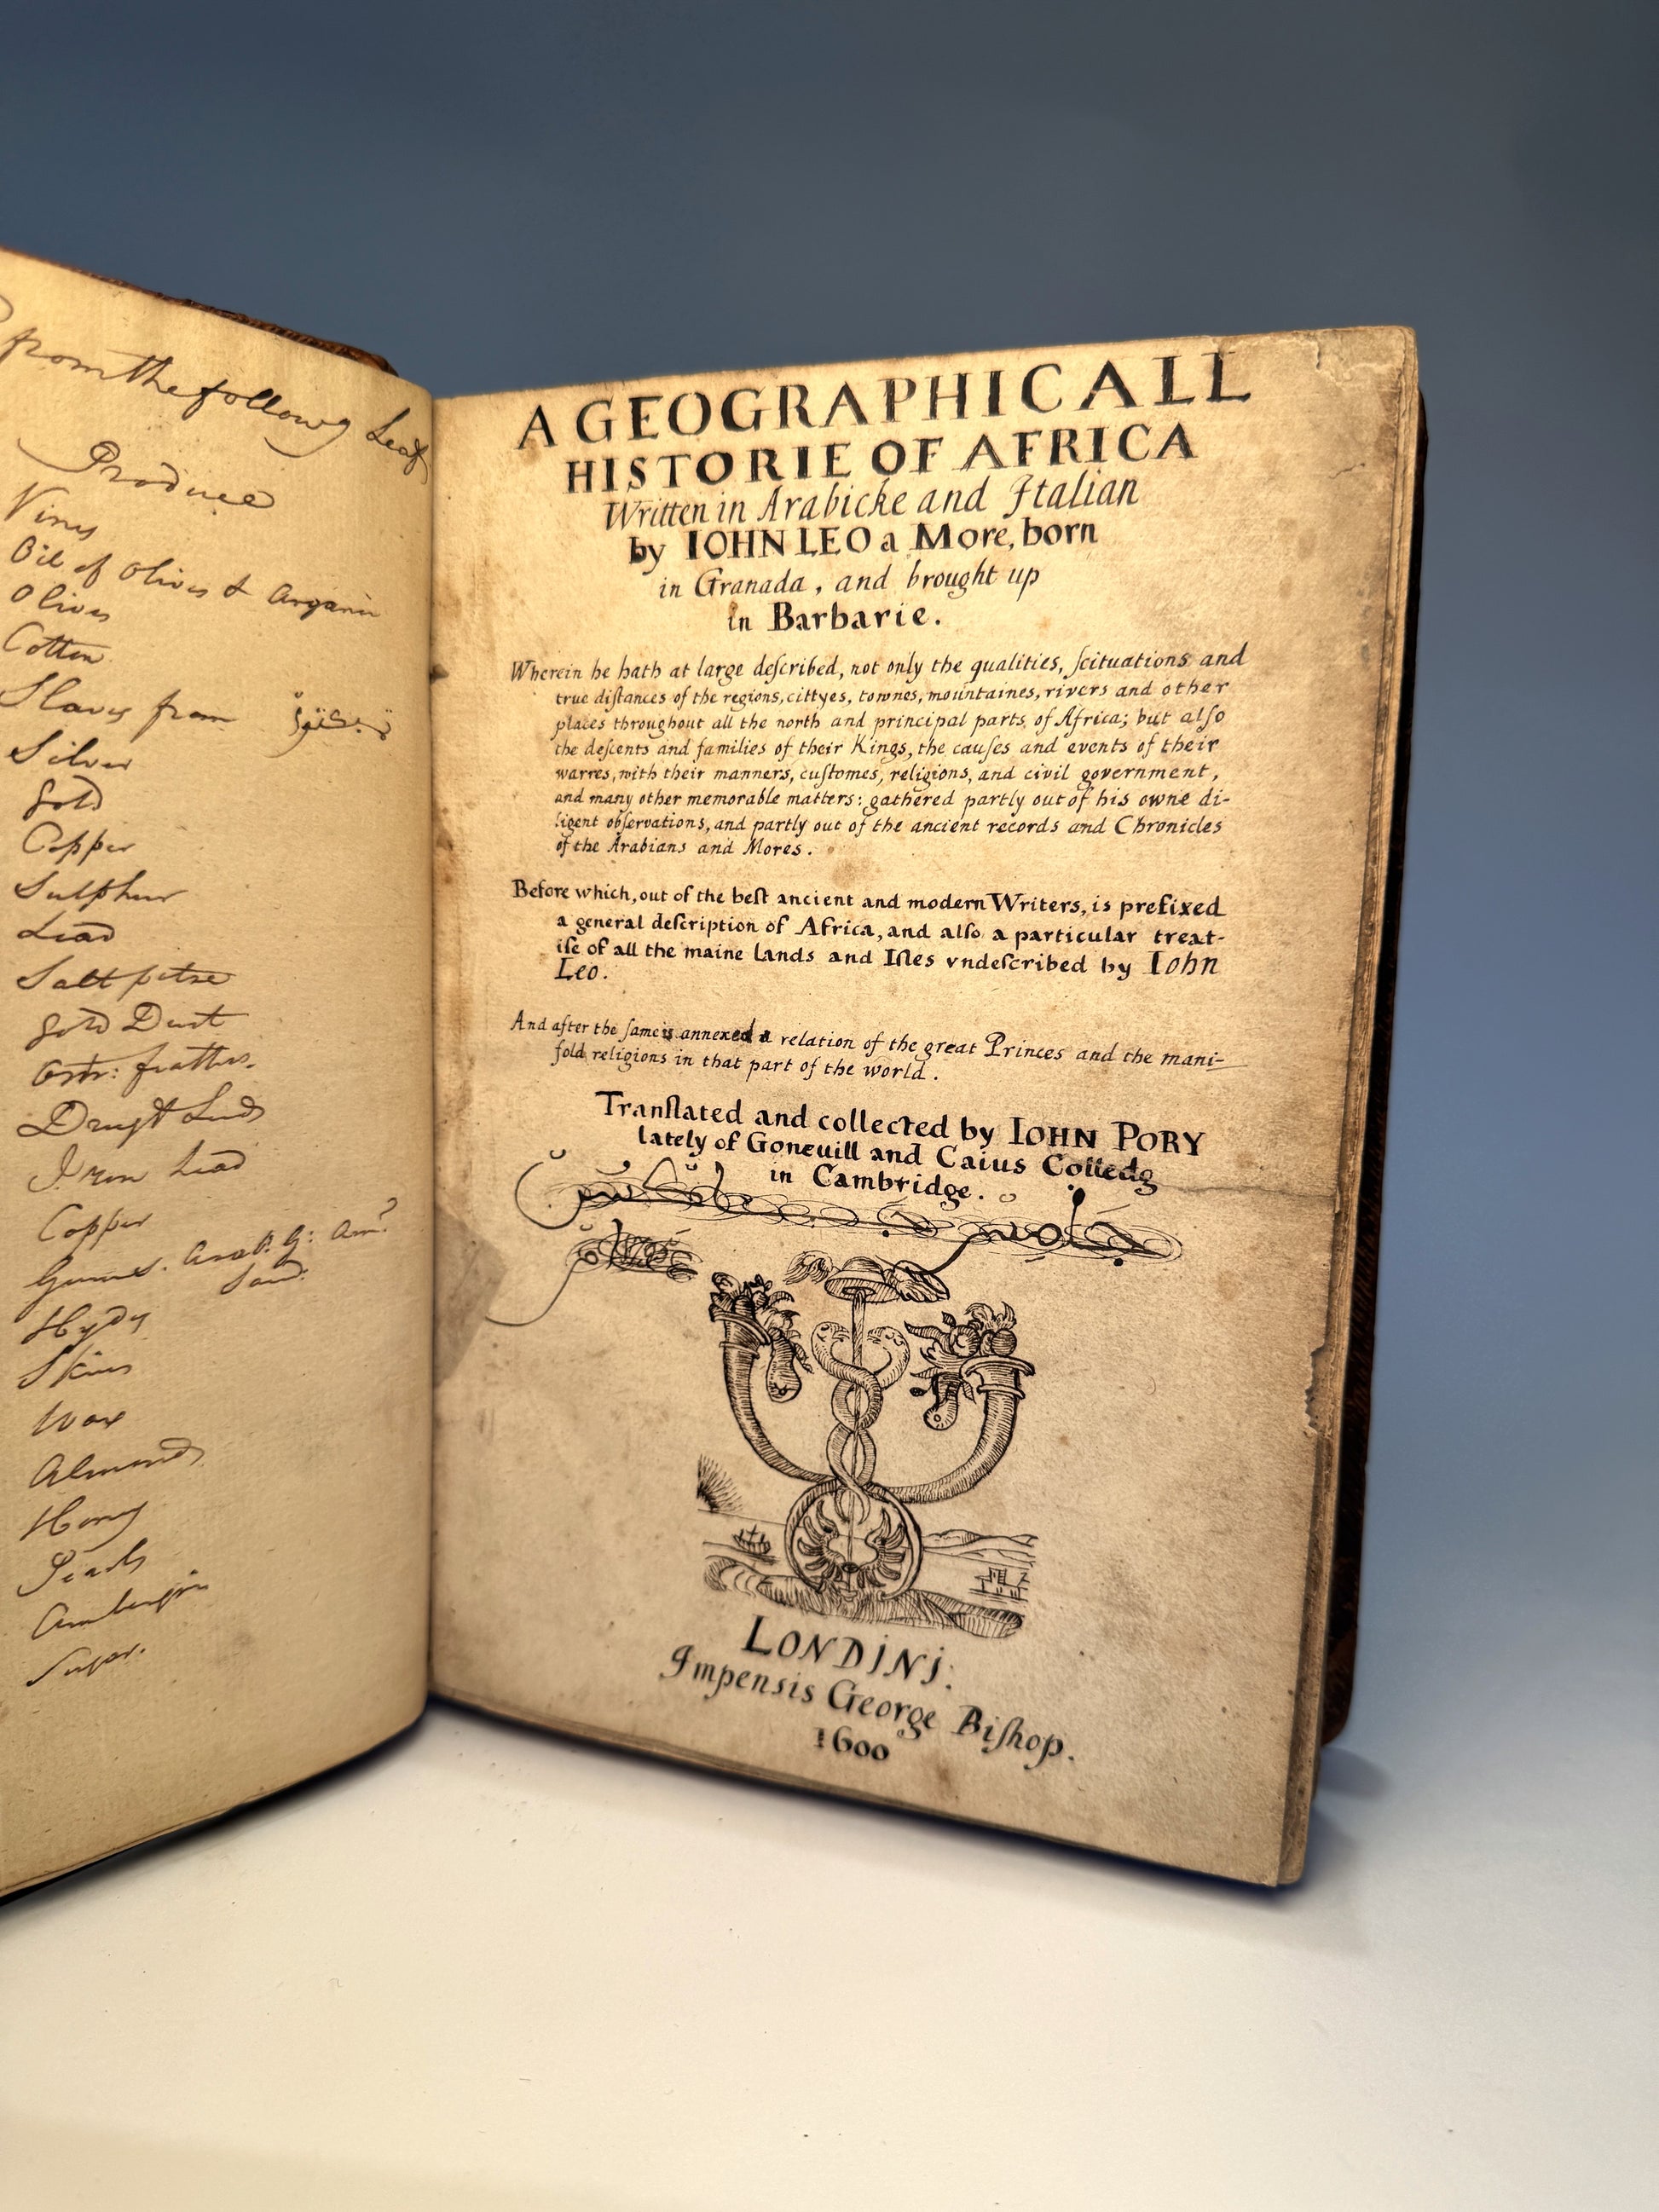 from the followg Leaf
Produce
Vines
Oil of Olives & Argani
Olives
Cotten
Slaves from
Silver
Gold
Copper
Sulphur
Lead
Saltpetre
Gold Dust
Ostr: feathers.
Iron Lead
Copper
Gums. Arab: G: Am:
Sand:
Hydes
Skins
Wax
Almonds
Hony
Sugar.
A GEOGRAPHICALL
HISTORIE OF AFRICA
Written in Arabicke and Italian
by IOHN LEO a More, born
in Granada, and brought up
in Barbarie.
Wherein he hath at large deſcribed, not only the qualities, ſcituations and
true diſtances of the regions, cittyes, townes, mountaines, rivers and other
places throughout all the north and principal parts of Africa; but alſo
the deſcents and families of their Kings, the cauſes and events of their
warres, with their manners, cuſtomes, religions, and civil government,
and many other memorable matters: gathered partly out of his owne di-
ligent obſervations, and partly out of the ancient records and Chronicles
of the Arabians and Mores.
Before which, out of the beſt ancient and modern Writers, is prefixed
a general deſcription of Africa, and alſo a particular treat-
iſe of all the maine lands and Iſles vndeſcribed by Iohn
Leo.
And after the ſame is annexed a relation of the great Princes and the mani-
fold religions in that part of the world.
Tranſlated and collected by IOHN PORY
lately of Goneuill and Caius Colledg
in Cambridge.
LONDINI.
Impensis George Biſhop.
1600